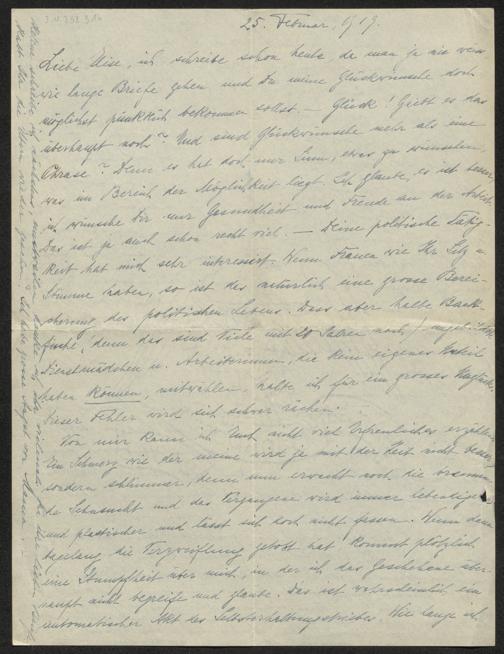 25. Februar 1919.
Liebe Elise, ich schreibe schon heute, da man ja nie weiss
wie lange Briefe gehen und Du meine Glückwünsche doch
möglichst pünktlich bekommen sollst. — Glück! Giebt es das
überhaupt noch? Und sind Glückwünsche mehr als eine
Phrase? Denn es hat doch nur Sinn, etwas zu wünschen,
was im Bereich der Möglichkeit liegt. Ich glaube, es ist besser
ich wünsche Dir nur Gesundheit und Freude an der Arbeit
Das ist ja auch schon recht viel. — Deine politische Tätig-
keit hat mich sehr interessiert. Wenn Frauen wie Ihr Sitz u
Stimme haben, so ist das natürlich eine grosse Berei-
cherung des politischen Lebens. Dass aber halbe Back-
fische, denn das sind Viele mit 20 Jahren noch,
Dienstmädchen u. Arbeiterinnen, die kein eigenes Urteil
haben können, mitwählen, halte ich für ein grosses Unglück.
Dieser Fehler wird sich schwer rächen.
Von mir kann ich Euch nicht viel Erfreuliches erzählen
Ein Schmerz wie der meine wird ja mit der Zeit nicht besser
sondern schlimmer, denn nun erwacht noch die brennen-
de Sehnsucht und das Vergangene wird immer lebendiger
und plastischer und lässt sich doch nicht fassen. Wenn dann
tagelang die Verzweiflung getobt hat kommt plötzlich
eine Stumpfheit über mich, in der ich das Geschehene über-
haupt nicht begreife und glaube. Das ist wahrscheinlich ein
automatischer Akt des Selbsterhaltungstriebes. Wie lange ich
schreibe ich nächstens, einstweilen danke ich ihr vielmals für ihre lieben
Ich habe grosse Angst vor Mama